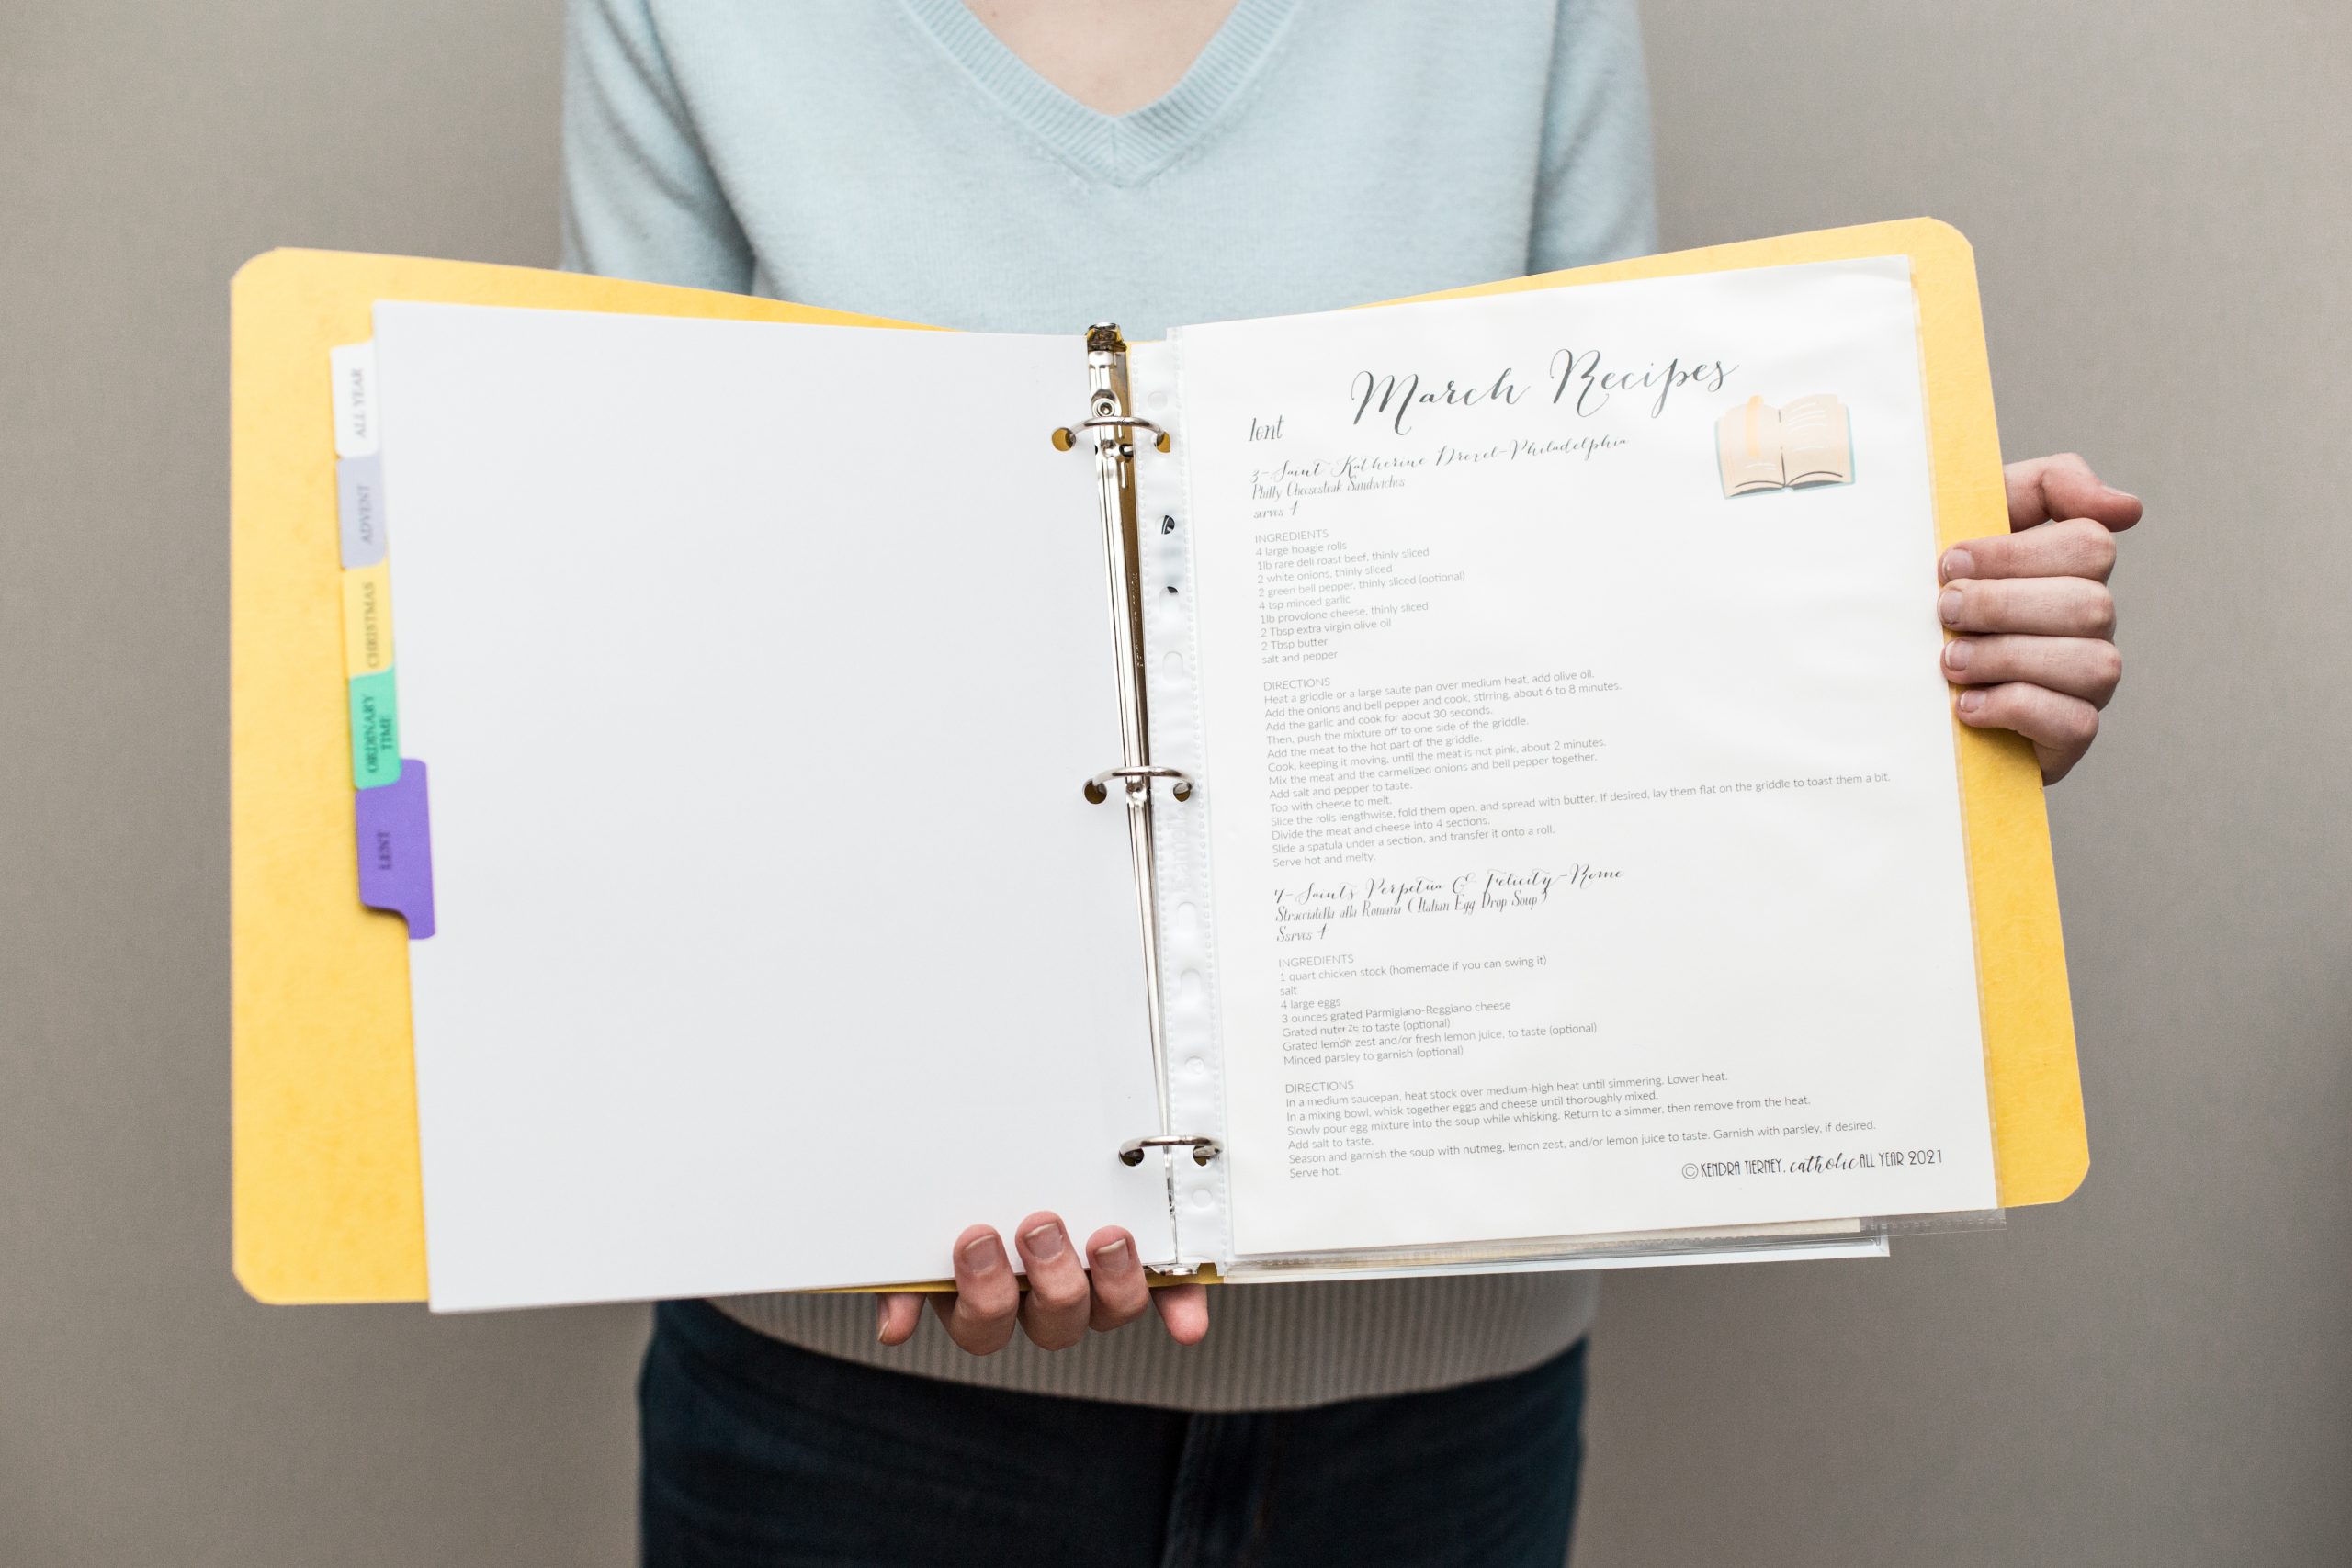 ALL YEAR
ADVENT
CHRISTMAS
ORDINARY
TIME
LENT
March Recipes
lent
3-Saint Katherine Drexel-Philadelphia
Philly Cheesesteak Sandwiches
serves 4
INGREDIENTS
4 large hoagie rolls
1lb rare deli roast beef, thinly sliced
2 white onions, thinly sliced
2 green bell pepper, thinly sliced (optional)
4 tsp minced garlic
1lb provolone cheese, thinly sliced
2 Tbsp extra virgin olive oil
2 Tbsp butter
salt and pepper
DIRECTIONS
Heat a griddle or a large saute pan over medium heat, add olive oil.
Add the onions and bell pepper and cook, stirring, about 6 to 8 minutes.
Add the garlic and cook for about 30 seconds.
Then, push the mixture off to one side of the griddle.
Add the meat to the hot part of the griddle.
Cook, keeping it moving, until the meat is not pink, about 2 minutes.
Mix the meat and the carmelized onions and bell pepper together.
Add salt and pepper to taste.
Top with cheese to melt.
Slice the rolls lengthwise, fold them open, and spread with butter. If desired, lay them flat on the griddle to toast them a bit.
Divide the meat and cheese into 4 sections.
Slide a spatula under a section, and transfer it onto a roll.
Serve hot and melty.
7-Saints Perpetua & Felicity-Rome
Stracciatella alla Romana (Italian Egg Drop Soup)
Serves 4
INGREDIENTS
1 quart chicken stock (homemade if you can swing it)
salt
4 large eggs
3 ounces grated Parmigiano-Reggiano cheese
Grated to taste (optional)
Grated lemon zest and/or fresh lemon juice, to taste (optional)
Minced parsley to garnish (optional)
DIRECTIONS
In a medium saucepan, heat stock over medium-high heat until simmering. Lower heat.
In a mixing bowl, whisk together eggs and cheese until thoroughly mixed.
Slowly pour egg mixture into the soup while whisking. Return to a simmer, then remove from the heat.
Add salt to taste.
Season and garnish the soup with nutmeg, lemon zest, and/or lemon juice to taste. Garnish with parsley, if desired.
Serve hot.
©KENDRA TIERNEY, catholic ALL YEAR 2021